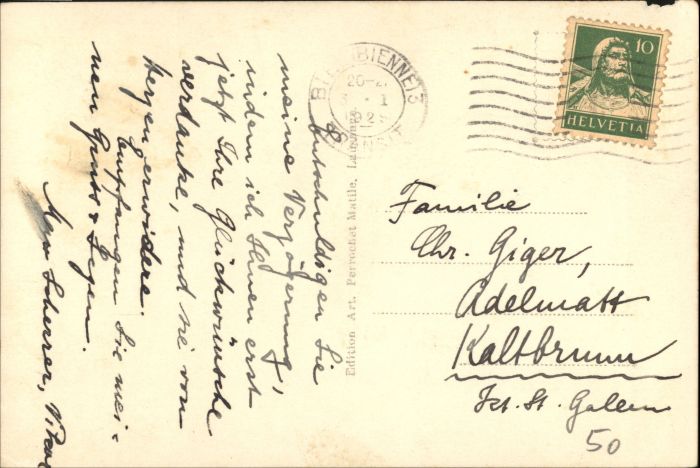 Entschuldigen Sie
meine Verzögerung,
indem ich Ihnen erst
jetzt Ihre Glückwünsche
verdanke, und sie von
Herzen erwidere.
Empfangen Sie mei-
nen Gruss & Segen.
Scherrer,
Edition Art. Perrochet Matile, Lausanne
BIEL (BIENNE) 3
10
HELVETIA
Familie
Chr. Giger,
Adelmatt
Kaltbrunn
Kt. St. Gallen
50